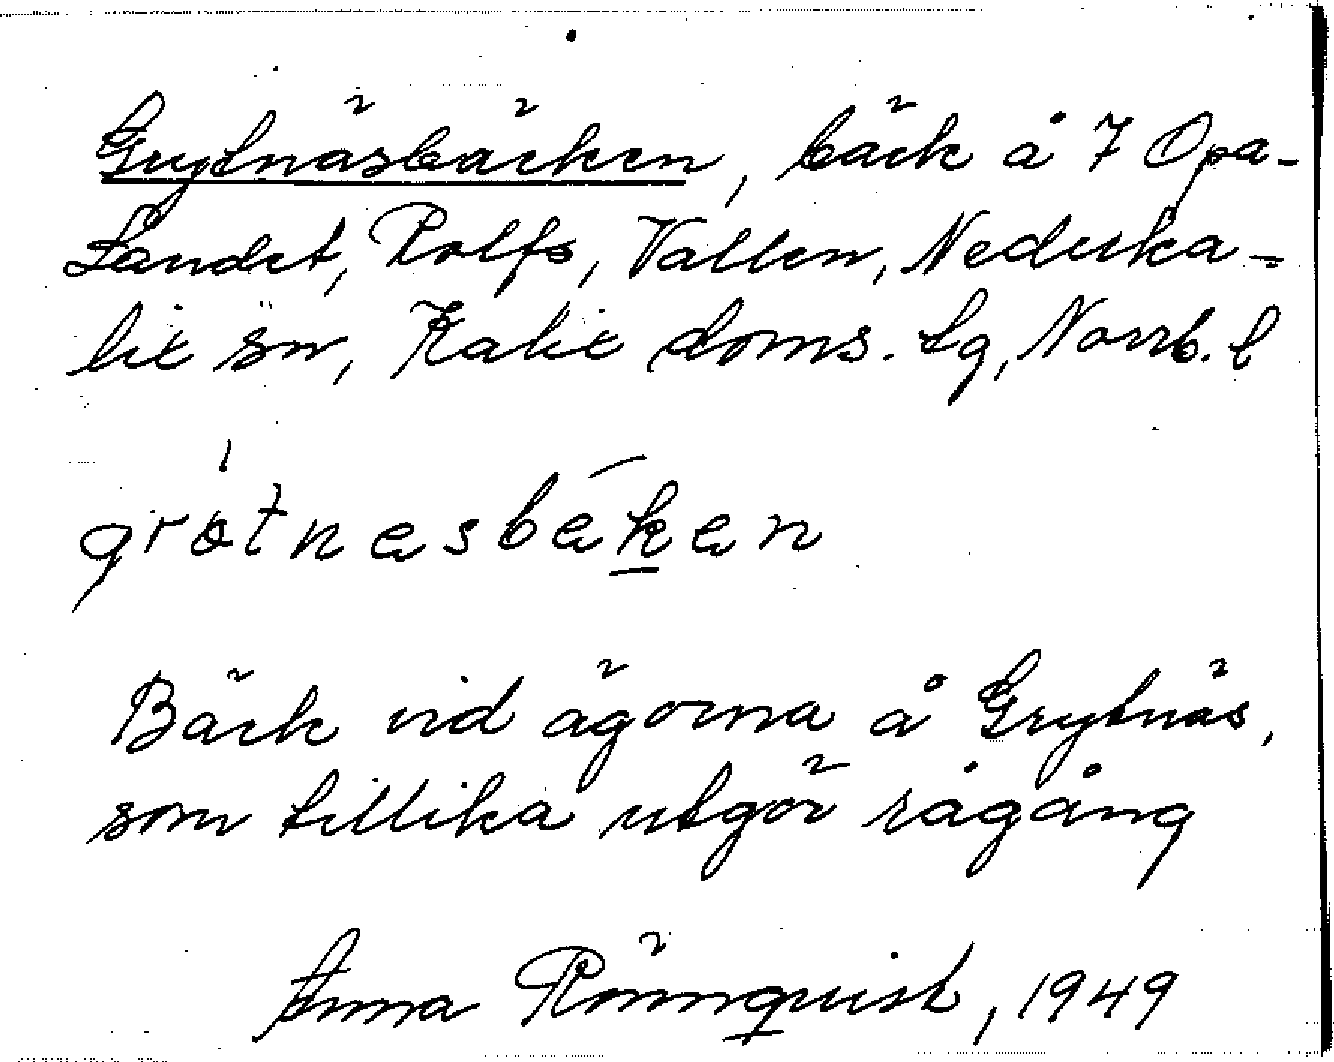 Grytnäsbäcken, bäck å 7 Opa-
Landet, Rolfs, Vallen, Nederka-
lix sn, Kalix doms. lg, Norrb. l
grötnesbäken
Bäck vid ägorna å Grytnäs,
som tillika utgör rågång
Anna Rönnquist, 1949